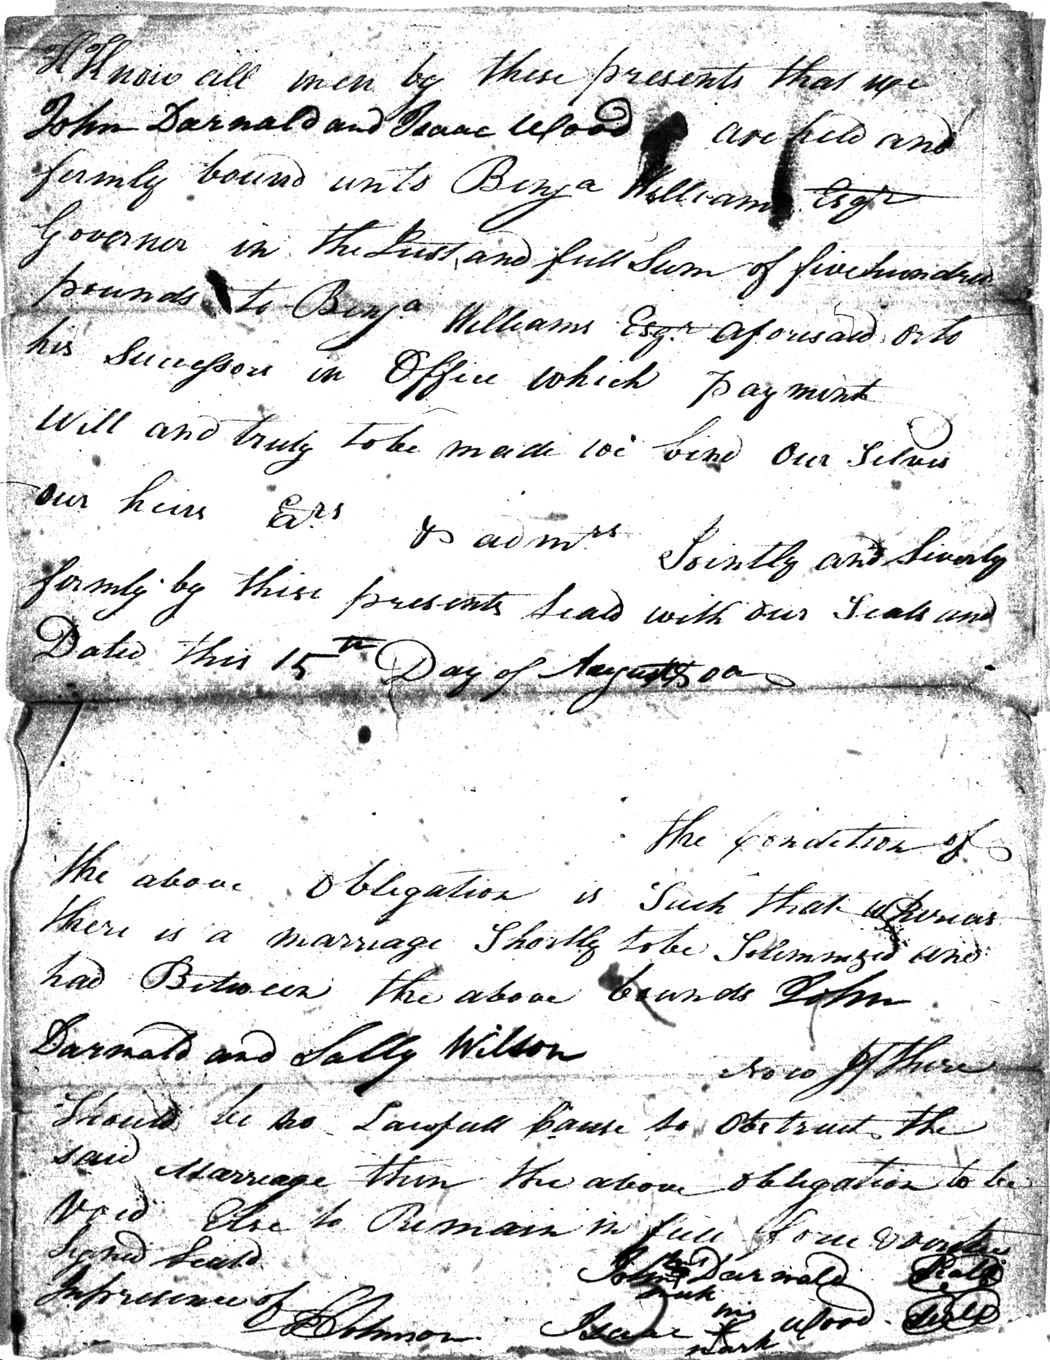 Know all men by these presents that we
John Darnald and Isaac Wood are held and
firmly bound unto Benja Williams Esqr
Governor in the Just and full Sum of five hundred
pounds to Benja Williams Esqr aforesaid or to
his Successors in Office which payment
Will and truly to be made we bind Our Selves
our heirs Ex.rs & admrs Jointly and Severly
firmly by these presents Seald with our Seals and
Dated this 15th Day of August
the Condition of
the above Obligation is Such that whereas
there is a marriage Shortly to be Solemnized and
had Between the above bounds John
Darnald and Sally Wilson Now If there
Should be no Lawfull Cause to Obstruct the
said Marriage then the above obligation to be
Void Else to Remain in full force & virtue
Signd Seald John Darnald Seal
Inpresence of mark
Johnson Isaac his Wood Seal
mark